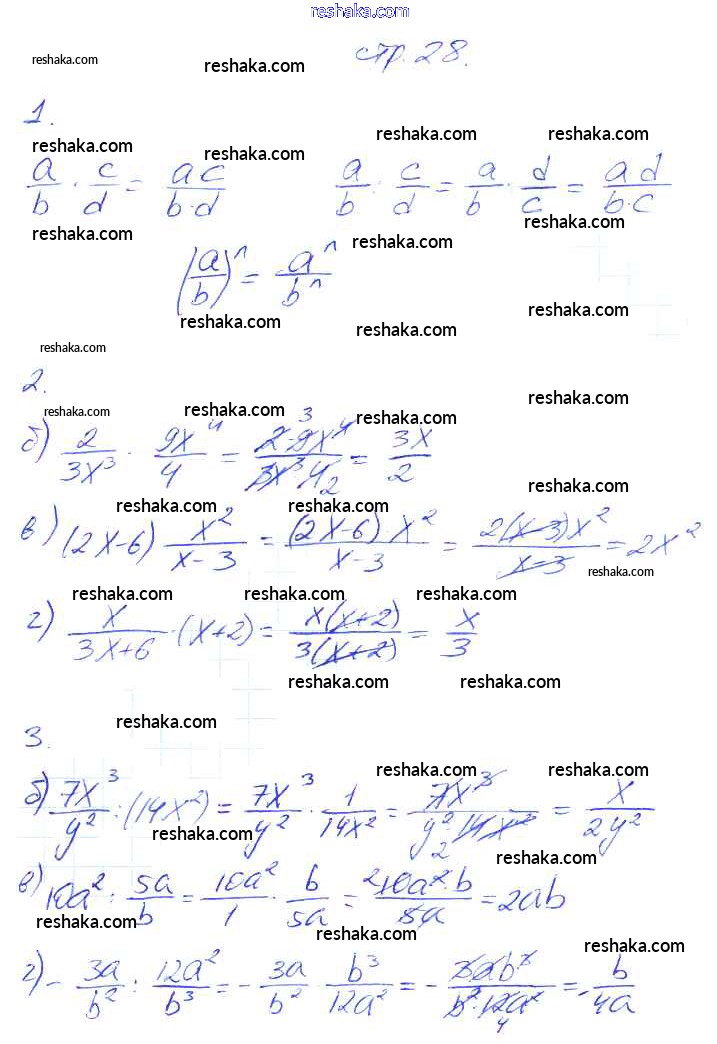 reshaka.com
reshaka.com reshaka.com стр. 28.
1.
reshaka.com reshaka.com reshaka.com reshaka.com
a/b · c/d = ac/b·d a/b : c/d = a/b · d/c = ad/b·c
reshaka.com reshaka.com reshaka.com
(a/b)ⁿ = aⁿ/bⁿ
reshaka.com reshaka.com reshaka.com
reshaka.com
2.
reshaka.com
reshaka.com reshaka.com reshaka.com
б) 2/3x³ · 9x⁴/4 = 2·9x⁴/3x³·4 = 3x/2
reshaka.com reshaka.com reshaka.com
в) (2x-6) x²/x-3 = (2x-6)x²/x-3 = 2(x-3)x²/x-3 = 2x²
reshaka.com
reshaka.com reshaka.com reshaka.com
г) x/3x+6 · (x+2) = x(x+2)/3(x+2) = x/3
reshaka.com reshaka.com
reshaka.com
3.
reshaka.com reshaka.com
б) 7x³/y² : (14x²) = 7x³/y² · 1/14x² = 7x³/y²14x² = x/2y²
reshaka.com reshaka.com
в) 10a² : 5a/b = 10a²/1 · b/5a = 10a²·b/5a = 2ab
reshaka.com reshaka.com reshaka.com
г) - 3a/b² : 12a²/b³ = - 3a/b² · b³/12a² = - 3ab³/b²·12a² = - b/4a
reshaka.com reshaka.com